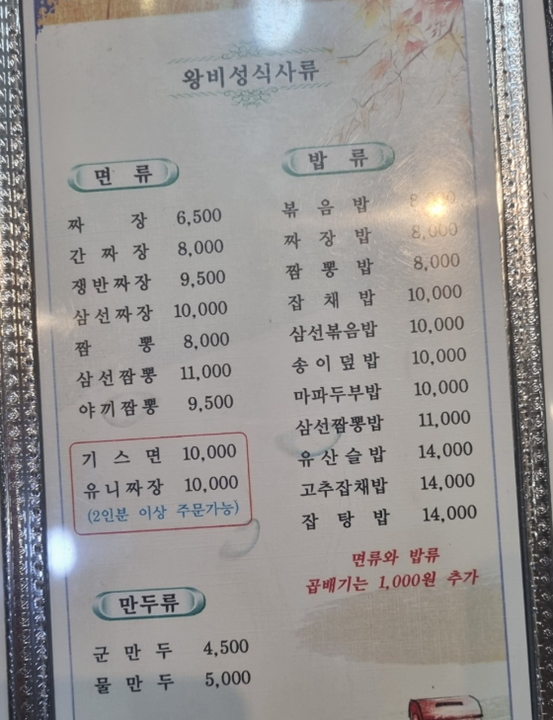 왕비성식사류
면 류
짜 장 6,500
간 짜 장 8,000
쟁반짜장 9,500
삼선짜장 10,000
짬 뽕 8,000
삼선짬뽕 11,000
야끼짬뽕 9,500
기 스 면 10,000
유니짜장 10,000
(2인분 이상 주문가능)
만두류
군 만 두 4,500
물 만 두 5,000
밥 류
볶 음 밥
짜 장 밥 8,000
짬 뽕 밥 8,000
잡 채 밥 10,000
삼선볶음밥 10,000
송이덮밥 10,000
마파두부밥 10,000
삼선짬뽕밥 11,000
유산슬밥 14,000
고추잡채밥 14,000
잡 탕 밥 14,000
면류와 밥류
곱배기는 1,000원 추가